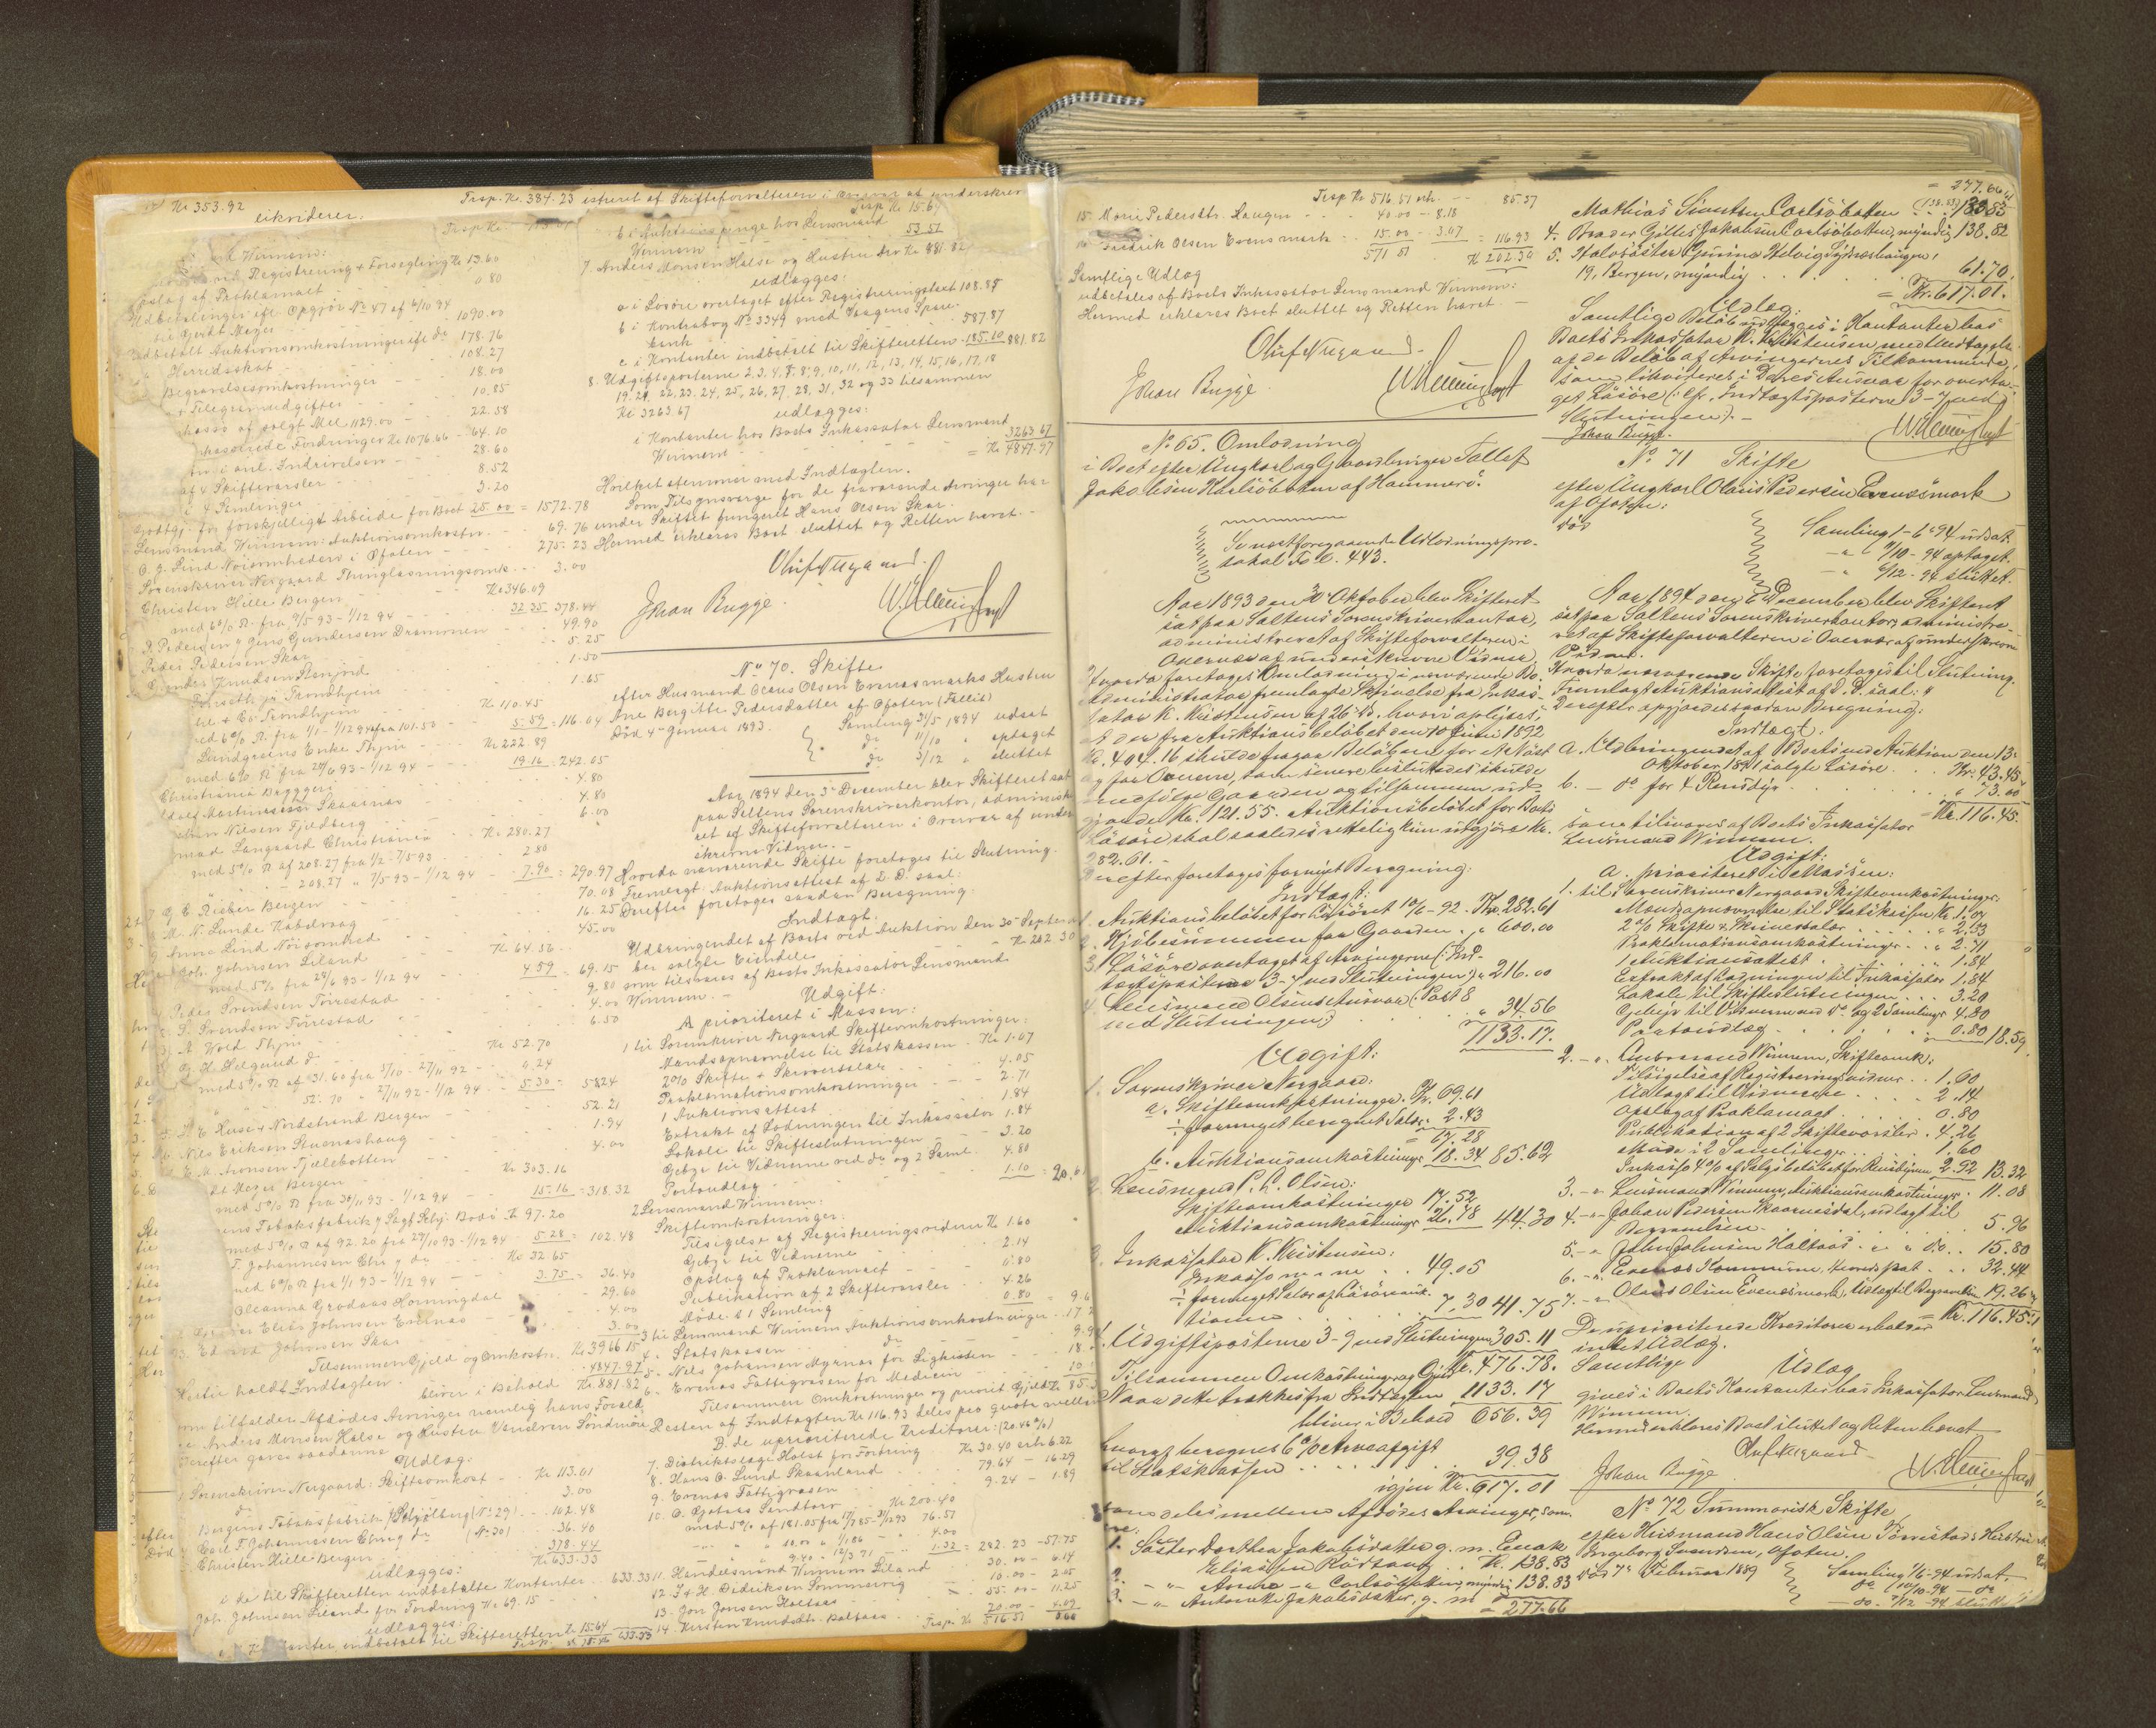 Kr 353.92
likviderer:
Trsp. Kr. 384.23
istreret af Skifteforvalteren i Overvær af underskrev
Registrering & Forsegling Kr 13.60
Opslag af Proklamaet 0.80
Udbetalinger ifl. Opgjør No 47 af 6/10 94
til Gerdt Meyer 1090.00
Udbetalt Auktionsomkostninger ifl. do 178.76
Herredsskat 108.27
Begravelsesomkostninger 18.00
Telegramudgifter 10.85
Incasso af solgt Mel 1129.00 - 22.58
indkasserede Fordringer Kr 1076.66 - 64.10
i anl. Indrivelsen - 28.60
af 4 Skiftevarsler 8.52
i 4 Samlinger 3.20
Godtgj. for forskjelligt Arbeide for Boet 25.00 = 1572.78
Lensmand Winnem: Auktionsomkostn. 69.76
O. J. Lind Nøisomheden i Ofoten 275.23
Sorenskriver Nergaard Thinglæsningsomk. 3.00
Christen Hille Bergen Kr 346.09
med 6% R. fra 9/5 93 - 1/12 94 - 32.35 378.44
P. Pedersen & Jens Gundersen Drammen 49.90
Peder Pedersen Skar 5.25
Knudsen 1.50
Forseth pr Trondhjem 1.65
& Co Trondhjem Kr 110.45
med 6% R. fra 1/1 - 1/12 94 fra 101.50 - 5.59 = 116.04
Lundgreens Enke Thjem Kr 222.89
med 6% R fra 20/6 93 - 1/12 94 19.16 = 242.05
Christiania Bryggeri 4.80
Martinussen Skaanes 4.80
Nilsen Fjeldberg 6.00
Langaard Christiania Kr. 280.27
med 5% R af 208.27 fra 1/2 - 7/5 93 2.80
- 208.27 " 7/5 93 - 1/12 94 7.90 = 290.97
G. C. Rieber Bergen 70.08
M. N. Lunde Kabelvaag 16.25
Anne Lind Nøisomhed 45.00
Joh. Johnsen Liland Kr 64.56
med 5% fra 28/6 93 - 1/12 94 4.59 = 69.15
Peder Svendsen Tørrestad 9.80
S. Svendsen Tørrestad 4.00
A. Nord Thjm 6.50
G. H. Helgerud do Kr 52.70
med 5% R af 31.60 fra 1/10 - 27/11 92 0.24
52.70 " 27/11 92 - 1/12 94 - 5.30 = 58.24
H. E. Huse & Nordstrand Bergen 52.21
Nils Eriksen Stuenæshaug 1.94
E. M. Aronsen Fjeldbotten 4.00
Meyer Bergen Kr. 303.16
med 5% R fra 30/11 93 - 1/12 94 15.16 = 318.32
Tobaksfabrik Bodø Kr 97.20
med 5% R af 92.20 fra 27/10 93 - 1/12 94 5.28 = 102.48
T. Johannesen Chra & do Kr 32.65
med 6% R fra 1/1 93 - 1/12 94 3.75 = 36.40
Oleanna Grodaas Horningdal 29.60
Elias Johnsen Evenæs 4.00
Edvard Johnsen Skar 3.00
Tilsammen Gjeld og Omkostn. Kr 3966.15
Hertil holdt Indtægten 4847.97
bliver i Behold Kr 881.82
som tilfalder Afdødes Arvinger nemlig hans Foræld
Anders Monsen Halse og Hustru Vandven Søndmøre
Derefter gaves saadanne
Udlæg:
1. Sorenskriver Nergaard: Skifteomkost - Kr 113.01
do 3.00
Bergens Tobaksfabrik (No 29) 102.48
Carl T. Johannesen Chra & do (No 30) 36.40
Christen Hille Bergen 378.44
udlægges: Kr 633.33
i de til Skifteretten indbetalte Kontanter 633.33
Joh. Johnsen Liland for Fordring Kr 69.15
udlægges:
Kontanter indbetalt til Skifteretten Kr 15.64
Trsp. Kr 15.64 633.33
Trsp Kr 15.64
b i Auktionspenge hos Lensmand
Winnem 53.51
7. Anders Monsen Halse og Hustru Arv Kr 881.82
udlægges:
a i Løsøre overtaget efter Registreringstaxt 108.85
b i Kontrabog No 3349 med Vaagens Spare-
bank 587.87
c i Kontanter indbetalt til Skifteretten 185.10 881.82
8. Udgiftsposterne 2, 3, 4, 7, 8, 9, 10, 11, 12, 13, 14, 15, 16, 17, 18
19, 21, 22, 23, 24, 25, 26, 27, 28, 31, 32 og 33 tilsammen
Kr 3263.67
udlægges:
i Kontanter hos Boets Inkassator Lensmand
Winnem 3263.67
= Kr 4847.97
Hvilket stemmer med Indtægten.
Som Tilsynsværge for de fraværende Arvinger har
under Skiftet fungeret Hans Olsen Skar.
Hermed erklæres Boet sluttet og Retten hævet.
Oluf Nergaard.
Johan Bugge.
No 70. Skifte
efter Husmand Olaus Olsen Evenæsmarks Hustru
Ane Bergitte Pedersdatter af Ofoten (Fallit)
Død 4de Januar 1893.
Samling 31/5 1894 udsat
do 11/10 " optaget
do 3/12 " sluttet
Aar 1894 den 3die December blev Skifteret sat
paa Saltens Sorenskriverkontor, administr
ret af Skifteforvalteren i Overvær af under
skrevne Vidner. -
Hvorda nærværende Skifte foretoges til Slutning.
Fremlagt: Auktionsattest af D. D. saal:
Derefter foretoges saadan Beregning:
Indtægt.
Udbringendet af Boets ved Auktion den 30 September
ber solgte Eiendele Kr 202.30
som tilsvares af Boets Inkassator Lensmand
Winnem. -
Udgift:
A prioriteret i Massen:
1 til Sorenskriver Nergaard Skifteomkostninger:
Mandsopnævnelse til Statskassen Kr 1.07
2% Skifte & Skriversalær 4.05
Proklamationsomkostninger 2.71
1 Auktionsattest 1.84
Extrakt af Lodningen til Inkassator 1.84
Lokale til Skifteslutningen 3.20
Gebyr til Vidnerne ved do og 2 Saml. 4.80
Portoudlæg 1.10 = 20.61
2 Lensmand Winnem:
Skifteomkostninger:
Tilsigelse af Registreringsvidner Kr 1.60
Gebyr til Vidnerne 2.14
Opslag af Proklamaet 0.80
Publikation af 2 Skiftevarsler 4.26
Møde i 1 Samling 0.80 = 9.6
3 til Lensmand Winnem Auktionsomkostninger 17.2
4 " Statskassen do
5 " Nels Johansen Myrnes for Ligkisten
6 " Evenæs Fattigvæsen for Medicin
Tilsammen Omkostninger og priorit Gjeld Kr 85.3
Resten af Indtægten Kr 116.93 deles pro quota mellem
B. de uprioriterede Kreditorer: (20.46%)
7. Distriktslæge Holst for Fordring Kr 30.40 erh 6.22
8. Hans O. Lund Skaanland 79.64 - 16.29
9. Evenæs Fattigvæsen 9.24 - 1.89
10. O. Gjahnes Sandtorv Kr 200.40
med 5% af 181.05 fra 17/7 85 - 31/12 93 76.57
10.00 " 1/1 86 4.00
9.40 " 12/3 91 1.32 = 282.23 - 57.75
11. Handelsmand Winnem Liland 30.00 - 6.14
12. J & H. Didriksen Sommervig 10.00 - 2.05
13. Jon Jonsen Holtaas 55.00 - 11.25
14. Kersten Knudsdtr. Holtaas 20.00 - 4.09
Trsp. Kr 516.51
Trsp Kr 516.51 erh. - 85.37
15. Marie Pedersdtr. Haugen - 40.00 - 8.18
16. Fredrik Olsen Evenæsmark - 15.00 - 3.07 = 116.93
571.51 Kr 202.30
Samtlige Udlæg
udbetales af Boets Inkassator Lensmand Winnem:
Hermed erklæres Boet sluttet og Retten hævet. -
Oluf Nergaard.
Johan Bugge.
No 65. Omlodning
i Boet efter Ungkarl og Gaardbruger Tollef
Jakobsen Karlsøbotten af Hammerø.
Se næstforegaaende Udlodningspro-
tokol Fol. 443.
Aar 1893 den 30 Oktober blev Skifteret
sat paa Saltens Sorenskriverkontor,
administreret af Skifteforvalteren i
Overvær af underskrevne Vidner,
Hvorda foretoges Omlodning i nærværende Bo.
Administrator fremlagde Skrivelse fra Inkas-
sator K. Kristensen af 26 ds. hvori oplyses,
at der fra Auktionsbeløbet den 10 Juni 1892
Kr. 404.16 skulde fragaa Beløbene for Nøst
og for Ovnene, som senere besluttedes skulde
medfølge Gaarden og tilsammen ud-
gjorde Kr. 121.55. Auktionsbeløbet for Boets
Løsøre skal saaledes rettelig kun udgjøre Kr.
282.61. -
Derefter foretoges fornyet Beregning:
Indtægt:
1. Auktionsbeløbet for Løsøret 10/6 - 92. Kr. 282.61
2. Kjøbesummen for Gaarden. " 600.00
3. Løsøre overtaget af Arvingerne (Ind-
tægtsposterne 3-7 ved Slutningen) " 216.00
4. Lensmand Olsens Ansvar (Post 8
ved Slutningen) " 34.56
1133.17.
Udgift:
1. Sorenskriver Nergaard:
a. Skifteomkostninger. Kr. 69.61
÷ formeget beregnet Salær 2.43
= 67.28
b. Auktionsomkostninger 18.34 85.62
2. Lensmand P. L. Olsen:
Skifteomkostninger 17.52
Auktionsomkostninger 26.78 44.30
3. Inkassator K. Kristensen:
Inkasso m. m. 49.05
÷ formeget Salær af Løsøreauk-
tionen 7.30 41.75
4. Udgiftsposterne 3-9 ved Slutningen 305.11
Tilsammen Omkostninger og Gjeld Kr. 476.78.
Naar dette trækkes fra Indtægten 1133.17
bliver i Behold 656.39
hvoraf beregnes 6% Arveafgift
til Statskassen 39.38
igjen Kr. 617.01
som deles mellem Afdødes Arvinger, som
ere:
1. Søster Dorthea Jakobsdatter g. m. Enok
Eliassen Rørvang Kr. 138.83
2. - " - Andrea - " Carlsøbotten myndig 138.83
3. - " - Antonette Jakobsdatter, g. m
= 277.66
= 277.66
Mathias Simonsen Carlsøbotten (138.83) 138.83
4. Broder Gilles Jakobsen Carlsøbotten, myndig 138.82
5. Halvsøster Gurine Helvig Sydneshaugen,
19, Bergen, myndig 61.70.
= Kr. 617.01.
Udlæg:
Samtlige Beløb udlægges i Kontanter hos
Boets Inkassator K. Kristensen, med Undtagelse
af de Beløb af Arvingernes Tilkommende,
som likvideres i Deres Ansvar for overta-
get Løsøre (: cfr. Indtægtsposterne 3-7 ved
Slutningen). -
Johan Bugge.
No 71 Skifte
efter Ungkarl Olaus Pedersen Evenæsmark
af Ofoten:
død
Samling 1 - 6 94 udsat.
- " - 9/10 - 94 optaget.
- " - 6/12 - 94 sluttet.
Aar 1894 den 6 December blev Skifteret
sat paa Saltens Sorenskriverkontor, administre-
ret af Skifteforvalteren i Overvær af underskrevne
Vidner.
Hvorda nærværende Skifte foretoges til Slutning.
Fremlagt Auktionsattest af D. D. saal: "
Derefter opgjordes saadan Beregning:
Indtægt.
a. Udbringendet af Boets ved Auktion den 13
Oktober 1891 solgte Løsøre Kr: 43.45
b. - do for 4 Rensdyr " 73.00
= Kr. 116.45.
som tilsvares af Boets Inkassator
Lensmand Winnem.
Udgift:
a. prioriteret i Massen:
1. til Sorenskriver Nergaard Skifteomkostninger:
Mandsopnævnelse til Statskassen Kr. 1.07
2% Skifte & Skriversalær " 2.33
Proklamationsomkostninger " 2.71
1 Auktionsattest 1.84
Extrakt af Lodningen til Inkassator 1.84
Lokale til Skifteslutningen 3.20
Gebyr til Vidnerne ved do og 2 Samlinger 4.80
Portoudlæg 0.80 18.59
2. - " Lensmand Winnem, Skifteomk:
Tilsigelse af Registreringsvidner 1.60
Udlagt til Vidnerne 2.14
Opslag af Proklamaet 0.80
Publikation af 2 Skiftevarsler 4.26
Møde i 2 Samlinger 1.60
Inkasso 4% af Salgsbeløbet for Rensdyrene 2.92 13.32
3. - " Lensmand Winnem, Auktionsomkostninger 11.08
4. - " Johan Pedersen Skaanesdal, udlagt til
Begravelsen 5.96
5. - " John Johnsen Holtaas - " - do. 15.80
6. - " Evenæs Kommune, Herredsskat 32.44
7. - " Olaus Olsen Evenæsmark, Udlæg til Begravelsen 19.26
= Kr. 116.45
De uprioriterede Kreditorer erholder
intet Udlæg.
Samtlige Udlæg
gives i Boets Kontanter hos Inkassator Lensmand
Winnem.
Hermed erklæres Boet sluttet og Retten hævet
Oluf Nergaard
Johan Bugge
No 72 Summarisk Skifte
efter Husmand Hans Olsen Tørrestads Hustru
Ingeborg Svendsen, Ofoten.
død 7de Februar 1889
Samling 1/6 - 94 udsat
do 10/10 - 94 - do
- do - 7/12 - 94 sluttet